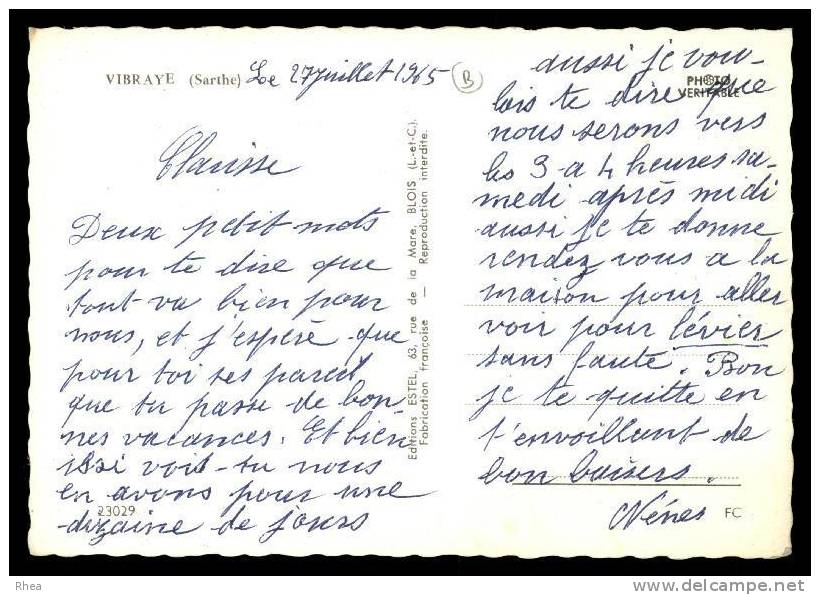 VIBRAYE (Sarthe) Le 27 juillet 1965 B
Clarisse
Deux petit mots
pour te dire que
tout va bien pour
nous, et j'espère que
pour toi ses pareil
que tu passe de bon-
nes vacances. Et bien
issi voit-tu nous
en avons pour une
dizaine de jours
23029
Editions ESTEL, 63, rue de la Mare, BLOIS (L.-et-C.).
Fabrication française — Reproduction interdite.
PHOTO
VERITABLE
aussi je vou-
lais te dire que
nous serons vers
les 3 a 4 heures sa-
medi après midi
aussi je te donne
rendez vous a la
maison pour aller
voir pour lévier
sans faute. Bon
je te quitte en
t'envoillant de
bon baisers.
Nénes
FC
Rhea
www.delcampe.net